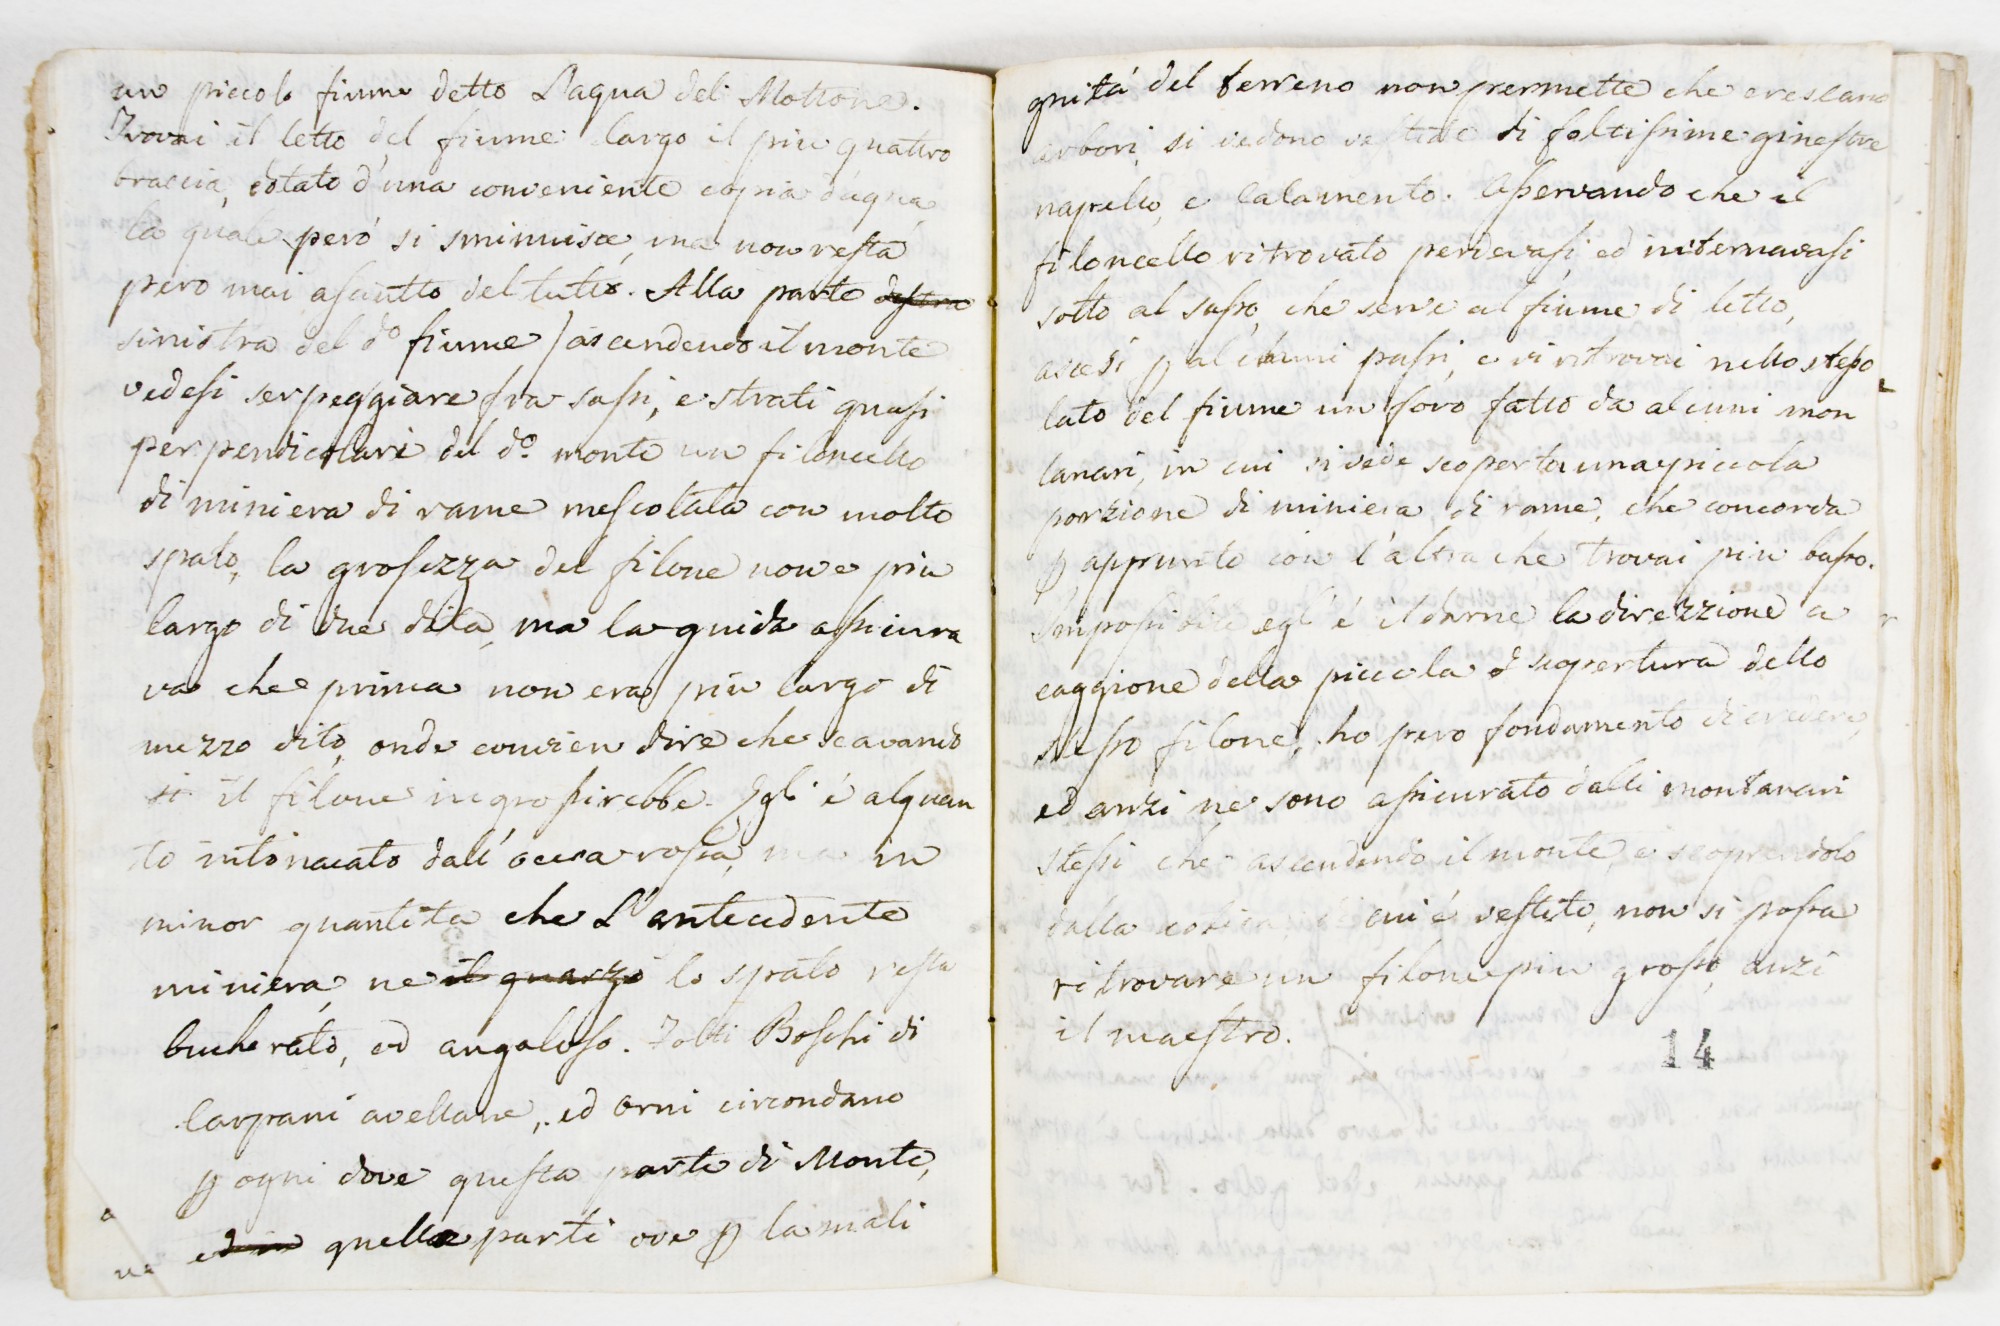 un piccolo fiume detto L'aqua del Mottone.
Trovai il letto del fiume largo il piu quattro
braccia, dotato d'una conveniente copia d'aqua,
la quale però si sminuisce, ma non resta
pero mai asciutto del tutto. Alla parte destra
sinistra del do fiume / ascendendo il monte
vedesi serpeggiare fra sassi, e strati quasi
perpendicolari del do. monte un filoncello
di miniera di rame mescolata con molto
spato, la grossezza del filone non e piu
largo di due dita, ma la guida assicura
va che prima non era piu largo di
mezzo dito, onde convien dire che scavando
si il filone ingrossirebbe. Egli é alquan
to intonacato dall'occra rossa, ma in
minor quantita che L'antecedente
miniera, ne il quarzo lo spato resta
bucherato, ed angoloso. Folti Boschi di
Carpani avellane, ed Orni circondano
p ogni dove questa parte di Monte,
ed in quelle parti ove p la mali
gnitá del terreno non permette che crescano
arbori, si vedono vestite di foltissime ginestre
napello, e Calamento. Osservando che il
filoncello ritrovato perdevasi, ed internavasi
sotto al sasso, che serve al fiume di letto,
ascesi p alcuni passi, e vi ritrovai nello stesso
lato del fiume un foro fatto da alcuni mon
tanari, in cui si vede scoperta una piccola
porzione di miniera di rame, che concorda
p appunto con l'altra che trovai piu basso.
Impossibile egl'é il darne la direzzione a
caggione della piccola scopertura dello
stesso filone, ho pero fondamento di credere,
ed anzi ne sono assicurato dalli montanari
stessi che ascendendo il monte, e scoprendolo
dalla di cui é vestito, non si possa
ritrovare un filone piu grosso, anzi
il maestro.
14